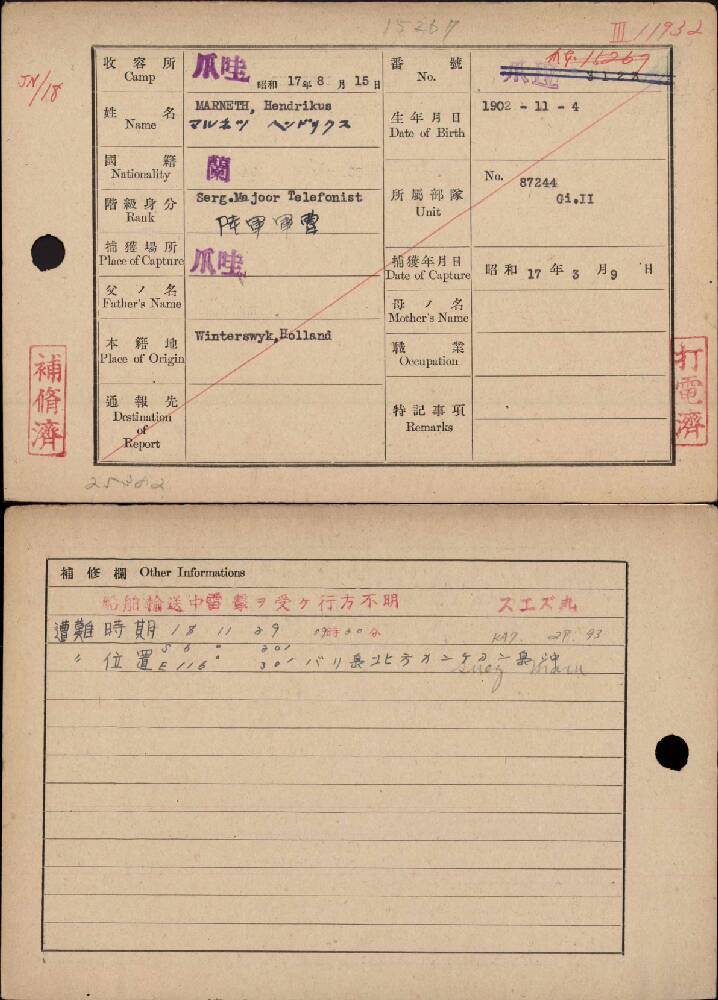 15267
III 11932
收容所 Camp 爪哇 昭和 17年 8月 15日
番號 No. 15267 爪哇 3123
姓名 Name MARNETH, Hendrikus
マルネツ ヘンドリクス
生年月日 Date of Birth 1902 - 11 - 4
國籍 Nationality 蘭
階級身分 Rank Serg.Majoor Telefonist
所屬部隊 Unit No. 87244
Gi.II
捕獲場所 Place of Capture 爪哇
捕獲年月日 Date of Capture 昭和 17 年 3 月 9 日
父ノ名 Father's Name
母ノ名 Mother's Name
本籍地 Place of Origin Winterswyk,Holland
職業 Occupation
通報先 Destination of Report
特記事項 Remarks
補脩濟
打電濟
補修欄 Other Informations
船舶輸送中雷擊ヲ受ケ行方不明 スエズ丸
遭難時期 18 11 29
〃 位置 S 6° 20'
E 116° 30' バリ島北方カンゲアン島沖
Suez Maru